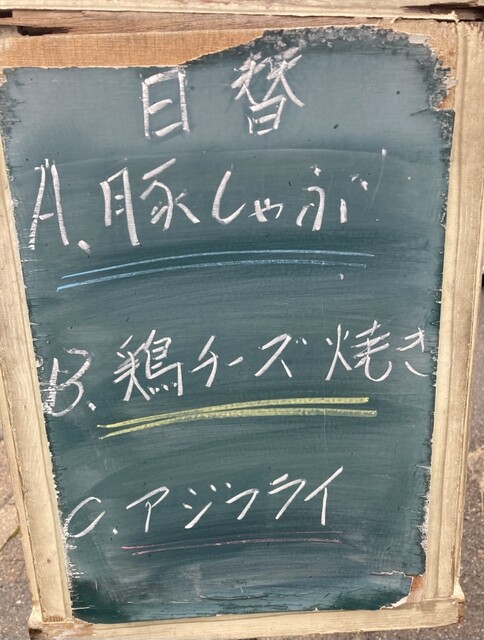 日替
A. 豚しゃぶ
B. 鶏チーズ焼き
C. アジフライ